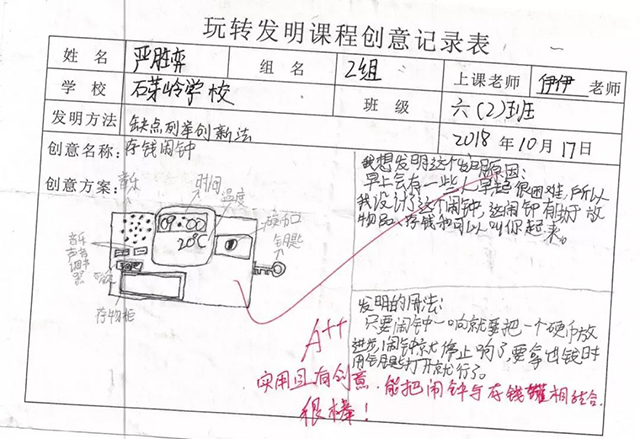 玩转发明课程创意记录表
姓名 严胜弈 组名 2组 上课老师 伊伊 老师
学校 石芽岭学校 班级 六(2)班
发明方法 缺点列举创新法 2018年10月17日
创意名称: 存钱闹钟
创意方案:
音乐
时间
温度
09:00
20℃
钥匙
音乐
声音
存物柜
我想发明这个的原因:
早上会有一些人早起很困难,所以
我设计了这个闹钟,这闹钟有好放
物品、存钱和可以叫你起来。
发明的用法:
只要闹钟一响就要把一个硬币放
进去,闹钟就停止响了,要拿出钱时
用钥匙打开就行了。
A++
实用且有创意,能把闹钟与存钱罐相结合.
很棒!